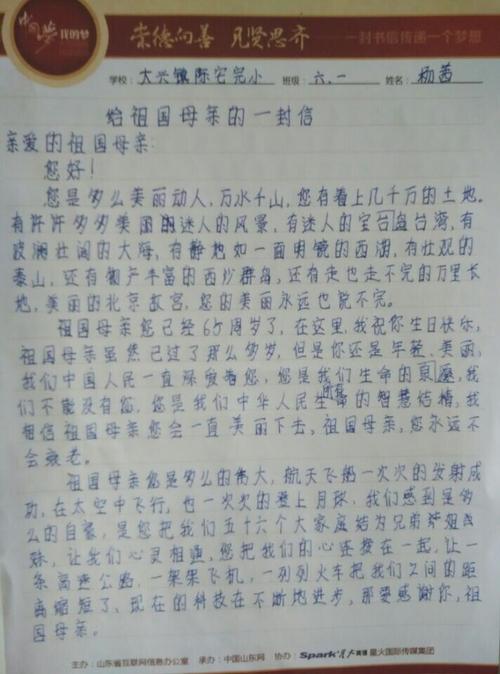 中国梦 我的梦
崇德向善 见贤思齐
一封书信传递一个梦想
学校：大兴镇陈宅完小 班级：六.一 姓名：杨茜
给祖国母亲的一封信
亲爱的祖国母亲：
您好！
您是多么美丽动人，万水千山，您有着上几千万的土地。
有许许多多美丽的迷人的风景，有迷人的宝岛台湾，有
波澜壮阔的大海，有静地如一面明镜的西湖，有壮观的
泰山，还有物产丰富的西沙群岛，还有走也走不完的万里长
地，美丽的北京故宫，您的美丽永远也说不完。
祖国母亲您已经65周岁了，在这里，我祝你生日快乐，
祖国母亲虽然已过了那么多岁，但是你还是年轻、美丽，
我们中国人民一直深爱着您，您是我们生命的源，我
们不能没有您，您是我们中华人民生命的所有智慧结晶，我
相信祖国母亲您会一直美丽下去，祖国母亲，您永远不
会衰老。
祖国母亲您是多么的伟大，航天飞船一次次的发射成
功，在太空中飞行，也一次次的登上月球，我们感到是多
么的自豪，是您把我们五十六个大家庭结为兄弟姐
妹，让我们心灵相通，您把我们的心连接在一起，让一
条高速公路，一架架飞机，一列列火车把我们之间的距
离缩短了、现在的科技在不断地进步，那要感谢你，祖
国母亲。
主办：山东省互联网信息办公室 承办：中国山东网 协办：Spark 星火英语 星火国际传媒集团